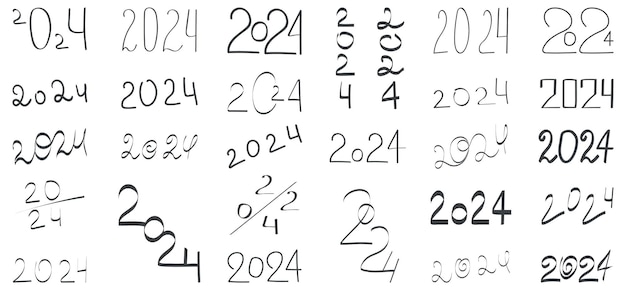 2024 2024 2024 2024 2024 2024 2024
2024 2024 2024 2024 2024
2024 2024 2024 2024 2024 2024
20/24 2024 20/24 2024 2024 2024
2024 2024 2024 2024